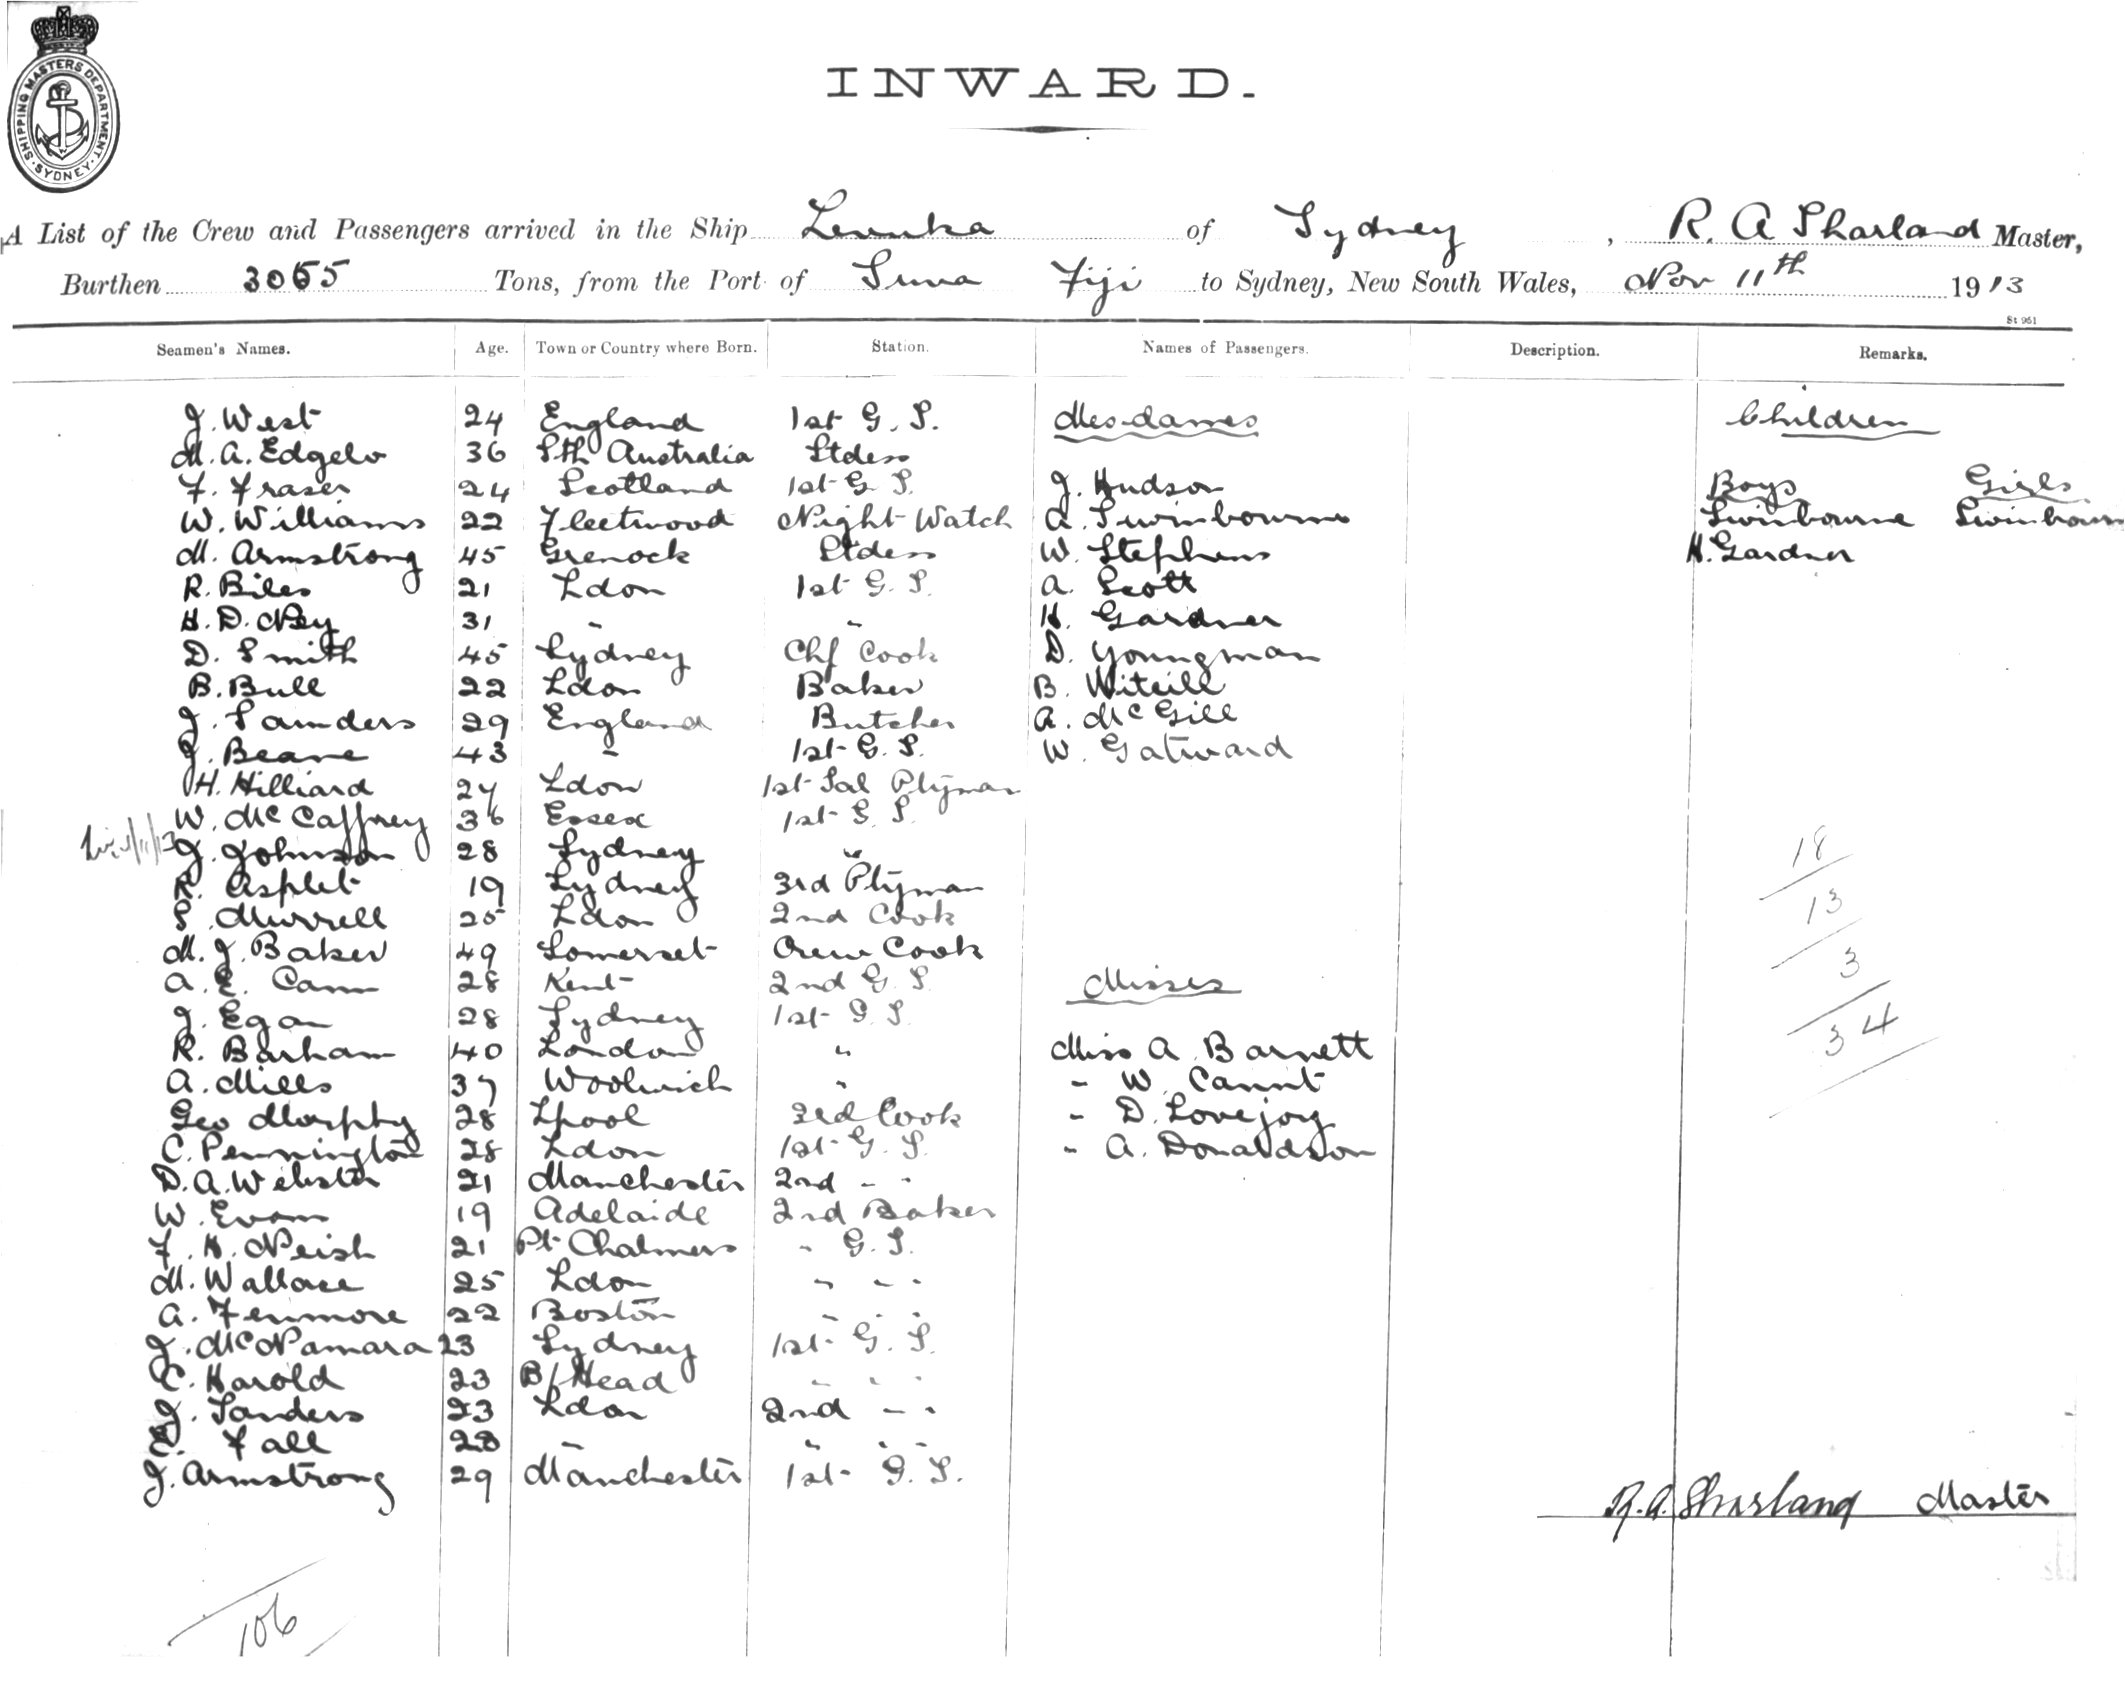 SHIPPING MASTERS DEPARTMENT. SYDNEY
INWARD.
A List of the Crew and Passengers arrived in the Ship Levuka of Sydney, R. A Sharland Master,
Burthen 3065 Tons, from the Port of Suva Fiji to Sydney, New South Wales, Nov 11th 1913
St 961
Seamen's Names. Age. Town or Country where Born. Station. Names of Passengers. Description. Remarks.
J. West 24 England 1st G. S. Mesdames Children
M. A. Edgelo 36 Sth Australia Stdess
F. Fraser 24 Scotland 1st G S. J. Hudson Boys Girls
W. Williams 22 Fleetwood Night Watch A. Swinbourne Swinbourne Swinbourn
M. Armstrong 45 Grenock Stdess W. Stephens H. Gardner
R. Biles 21 Ldon 1st G. S. A. Scott
H. D. Ney 31 - " H. Gardner
D. Smith 45 Sydney Chf Cook D. Youngman
B. Bull 22 Ldon Baker B.
J. Saunders 29 England Butcher A. McGill
J. Beane 43 - 1st G. S. W. Gatward
H. Hilliard 27 Ldon 1st Sal Ptyman
W. McCaffrey 36 Essex 1st G. S.
J. Johnson 28 Sydney " 18
R. Asplet 19 Sydney 3rd Ptyman 13
S. Murrell 25 Ldon 2nd Cook
M. J. Baker 49 Somerset Crew Cook 3
A. E. Cann 28 Kent 2nd G. S. Misses
J. Egan 28 Sydney 1st G S. 34
R. Barham 40 London " Miss A. Barnett
A. Mills 37 Woolwich " - W. Cannt
Geo Morphy 28 Lpool 3rd Cook - D. Lovejoy
C. Pennington 28 Ldon 1st G. S. - A. Donaldson
D. A. Webster 21 Manchester 2nd - -
W. Evans 19 Adelaide 2nd Baker
F. H. Neish 21 Pt Chalmers " G. S.
M. Wallace 25 Ldon " - -
A. Fenmore 22 Boston " " "
J. McNamara 23 Sydney 1st G. S.
C. Harold 23 B/Head " " "
J. Sanders 23 Ldon 2nd - -
E. Fall 28 - " " "
J. Armstrong 29 Manchester 1st G. S.
R. A. Sharland Master
106